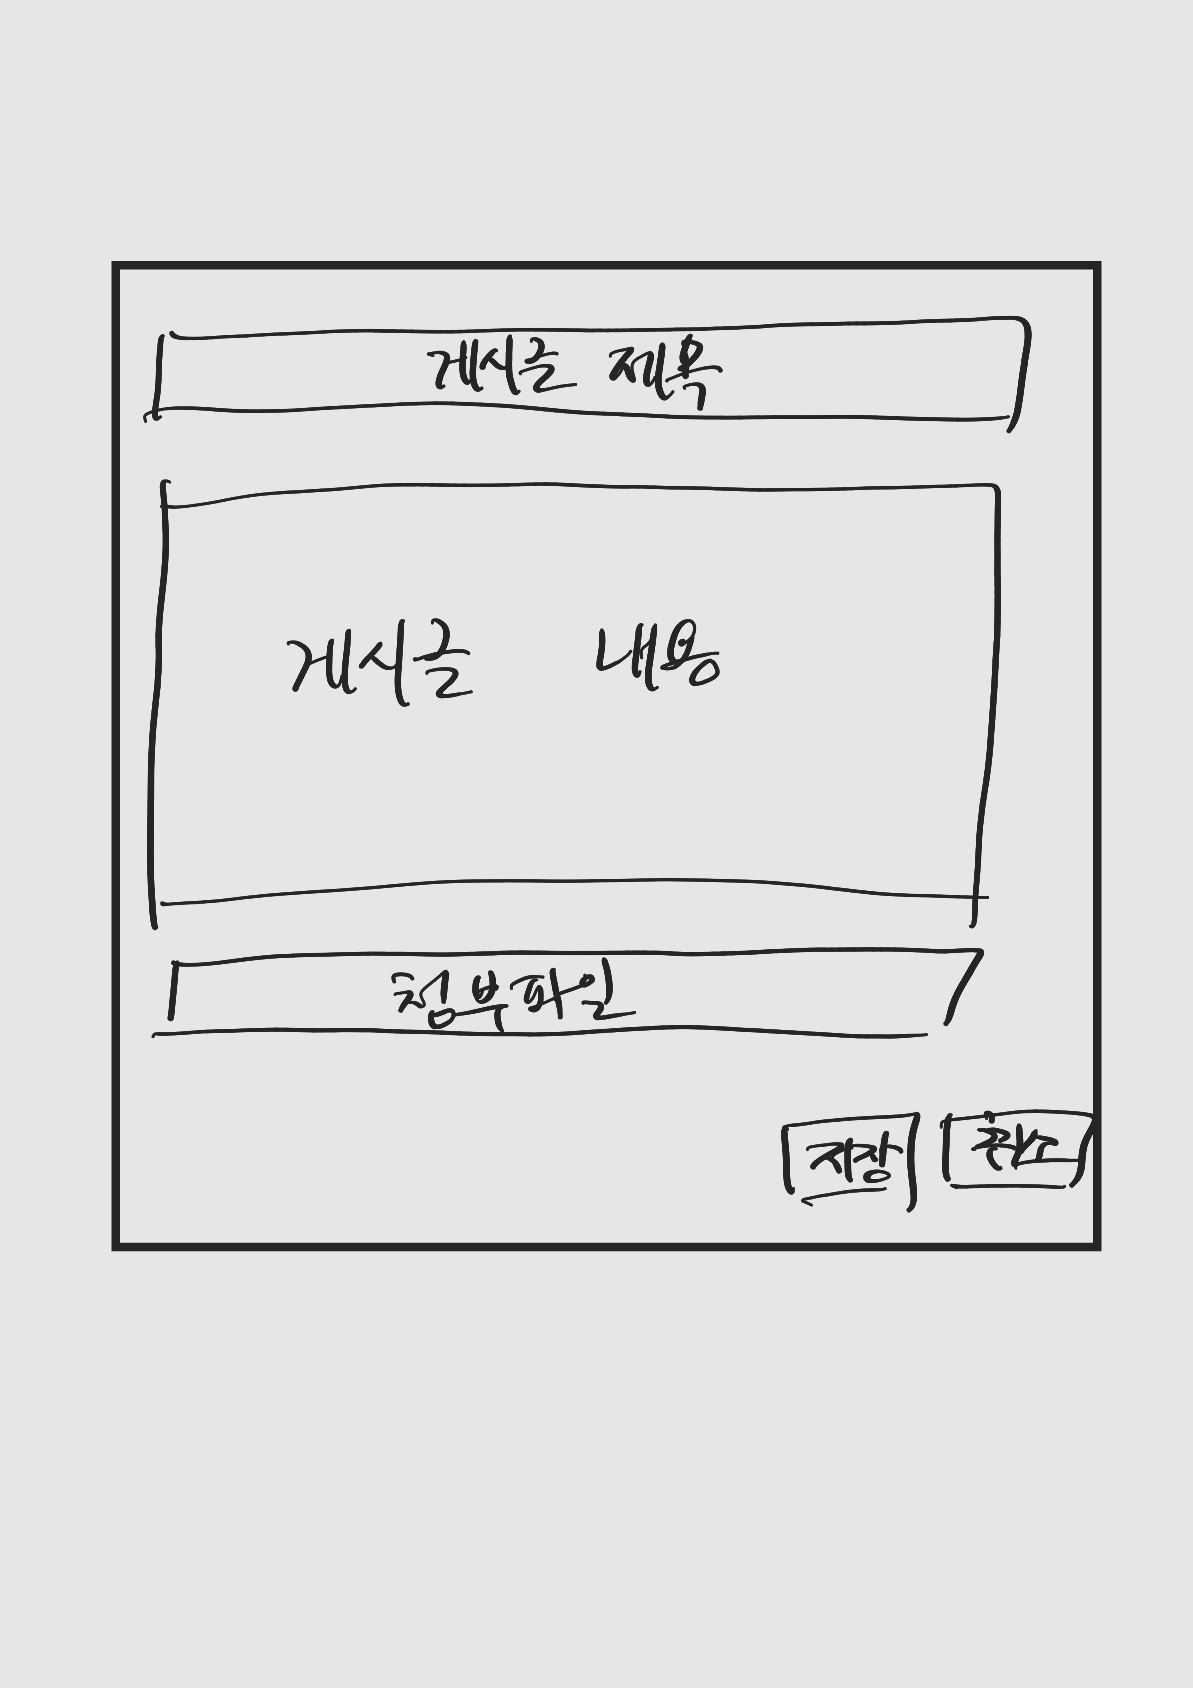 게시글 제목
게시글 내용
첨부파일
저장 취소